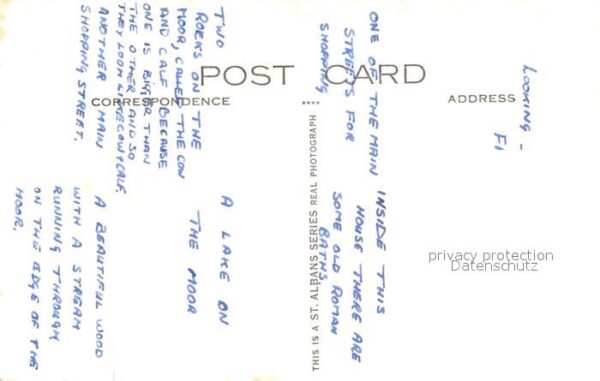 POST CARD
CORRESPONDENCE
ADDRESS
THIS IS A ST. ALBANS SERIES REAL PHOTOGRAPH
LOOKING -
FI
ONE OF THE MAIN
STREETS FOR
SHOPPING
INSIDE THIS
HOUSE THERE ARE
SOME OLD ROMAN
BATHS
TWO
ROCKS ON THE
MOOR, CALLED THE COW
AND CALF BECAUSE
ONE IS BIGGER THAN
THE OTHER AND SO
THEY LOOK LIKE COW & CALF.
ANOTHER MAIN
SHOPPING STREET.
A LAKE ON
THE MOOR
A BEAUTIFUL WOOD
WITH A STREAM
RUNNING THROUGH
ON THE EDGE OF THE
MOOR.
privacy protection
Datenschutz